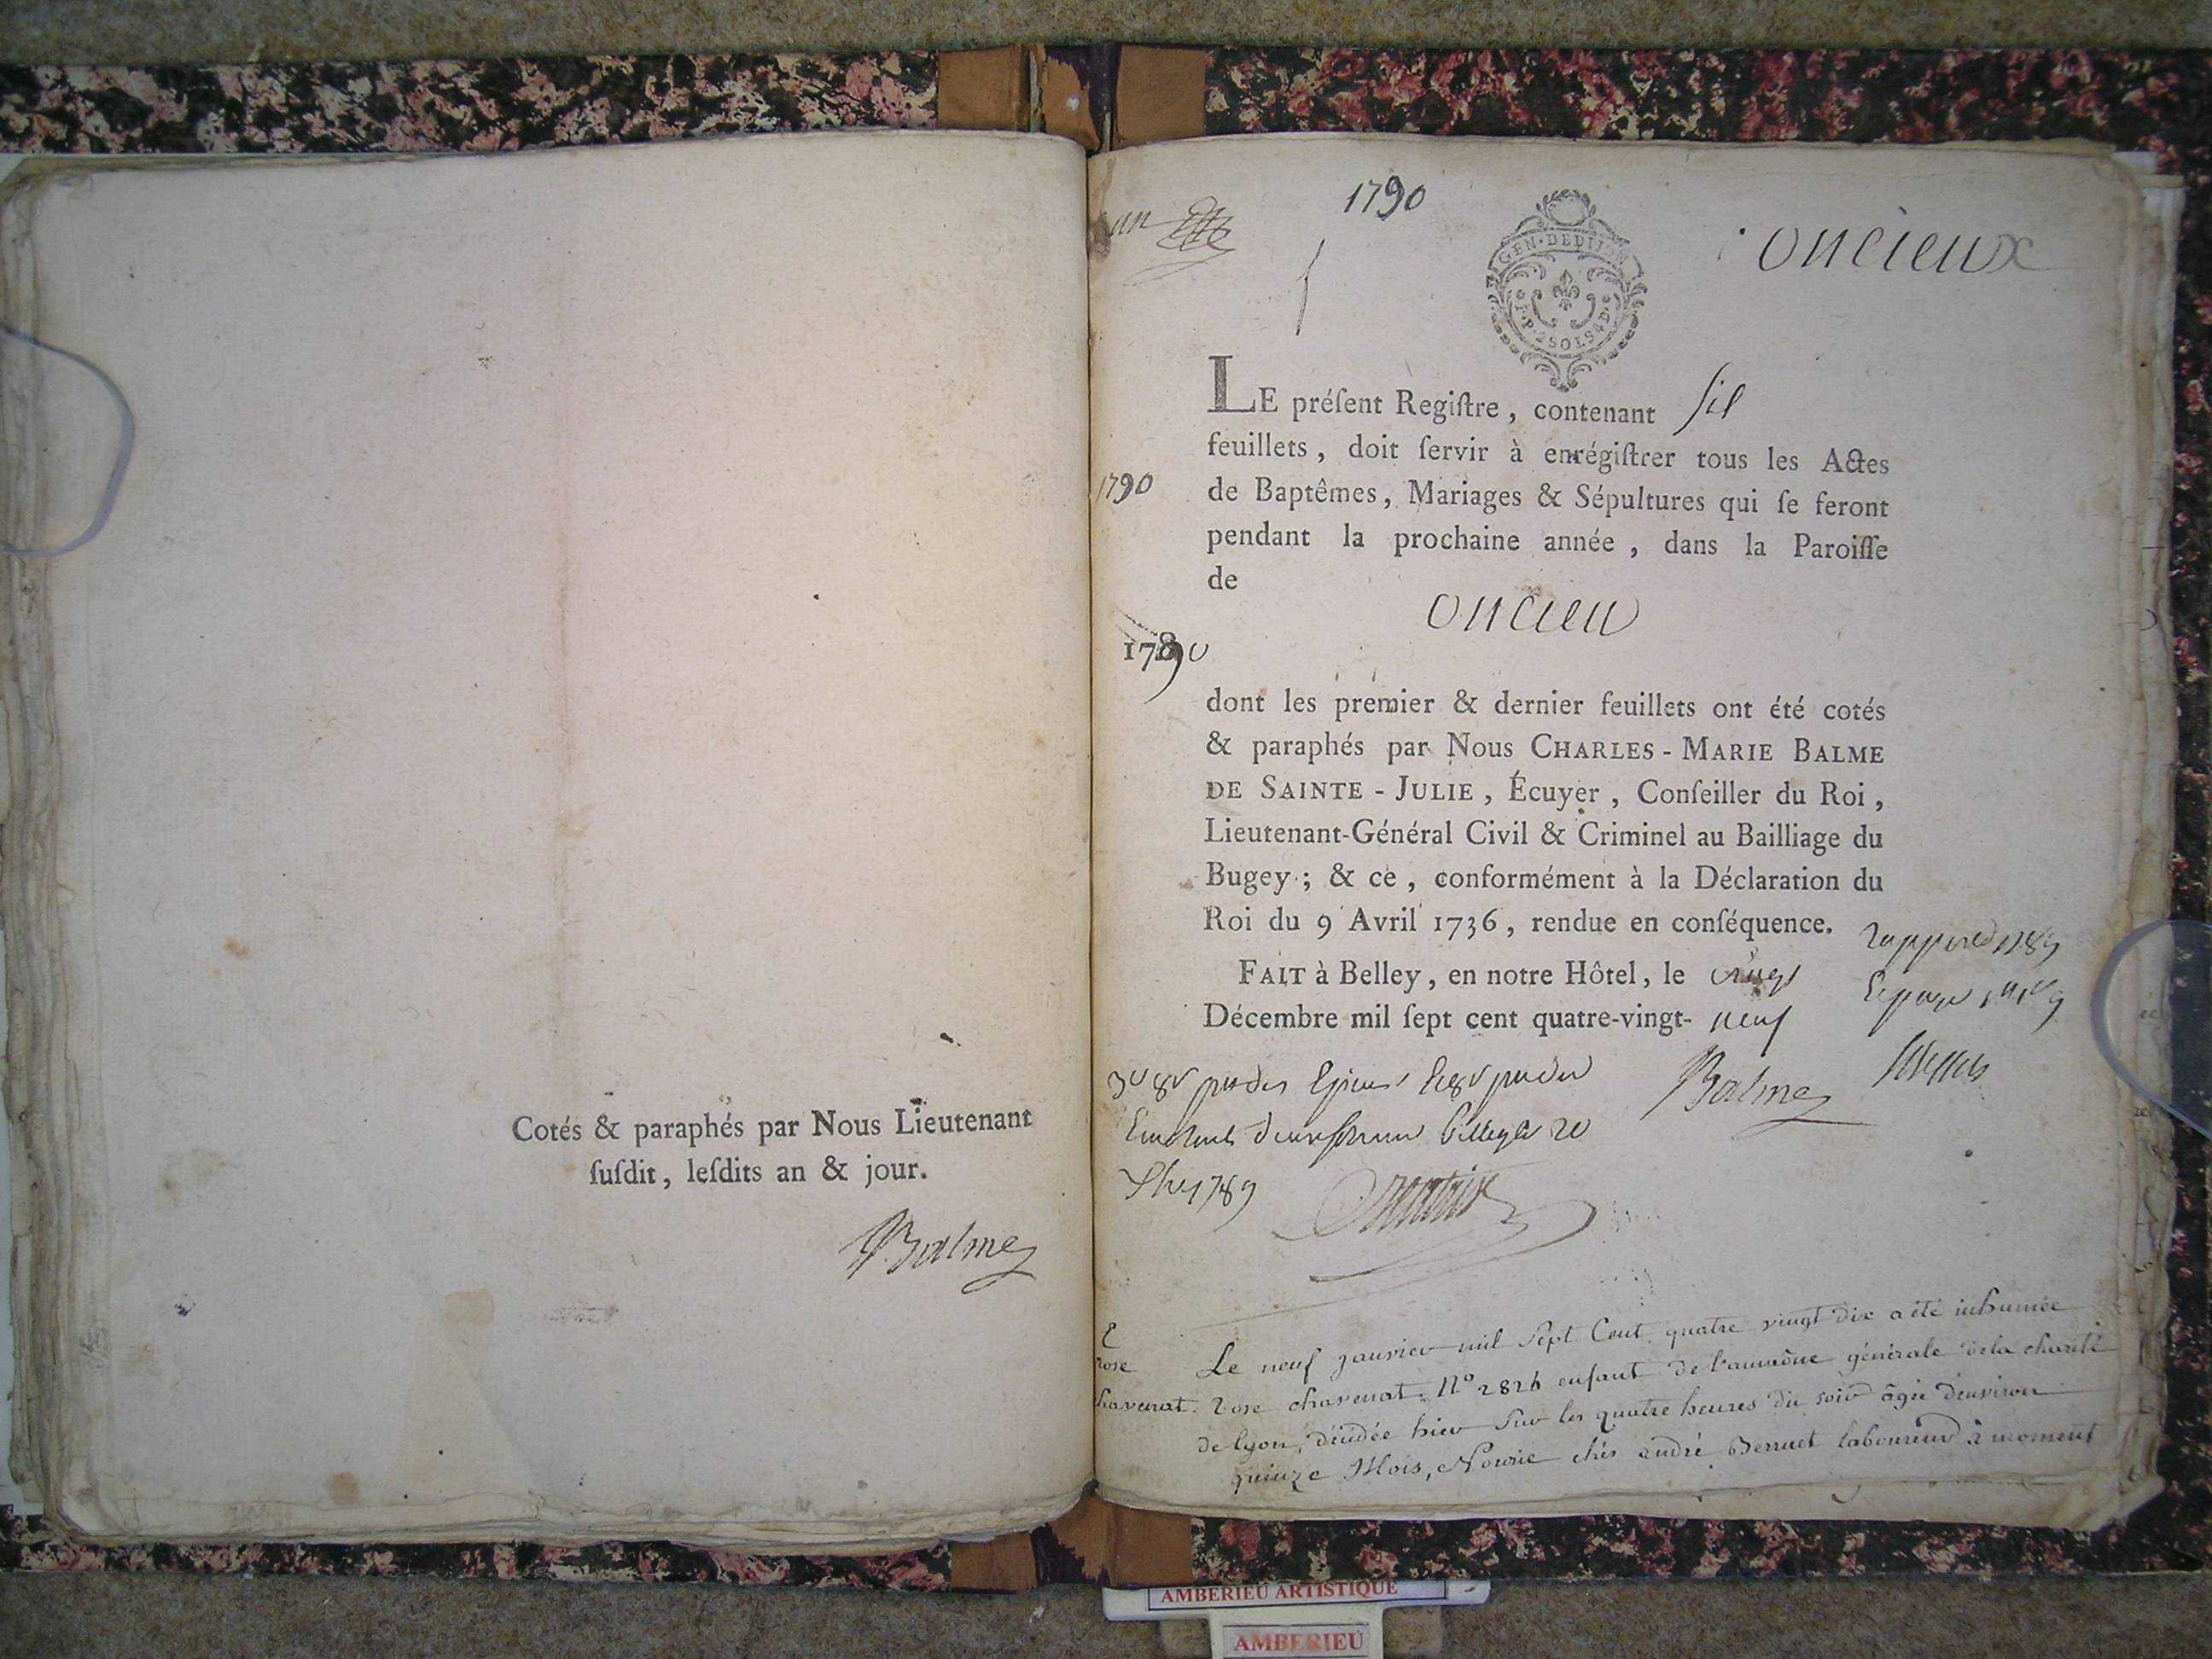 Cotés & paraphés par Nous Lieutenant
ſuſdit, leſdits an & jour.
Balme
un
1790
GEN·DEDIJON
SOLS
oncieux
LE préſent Regiſtre, contenant ſix
feuillets, doit ſervir à enrégiſtrer tous les Actes
1790
de Baptêmes, Mariages & Sépultures qui ſe feront
pendant la prochaine année, dans la Paroiſſe
de
oncieu
1790
dont les premier & dernier feuillets ont été cotés
& paraphés par Nous CHARLES-MARIE BALME
DE SAINTE-JULIE, Écuyer, Conſeiller du Roi,
Lieutenant-Général Civil & Criminel au Bailliage du
Bugey; & ce, conformément à la Déclaration du
Roi du 9 Avril 1736, rendue en conſéquence.
FAIT à Belley, en notre Hôtel, le vingt
Décembre mil ſept cent quatre-vingt-neuf
Balme
1789
E
rose
chavenat.
Le neuf janvier mil Sept Cent quatre vingt dix a été inhumée
rose chavenat N° 2826 enfant de l'aumône générale de la charité
de lyon, décédée hier Sur les quatre heures du soir âgée d'environ
quinze Mois, Nourie chés andré Berruet laboureur à moment
AMBERIEU ARTISTIQUE
AMBERIEU